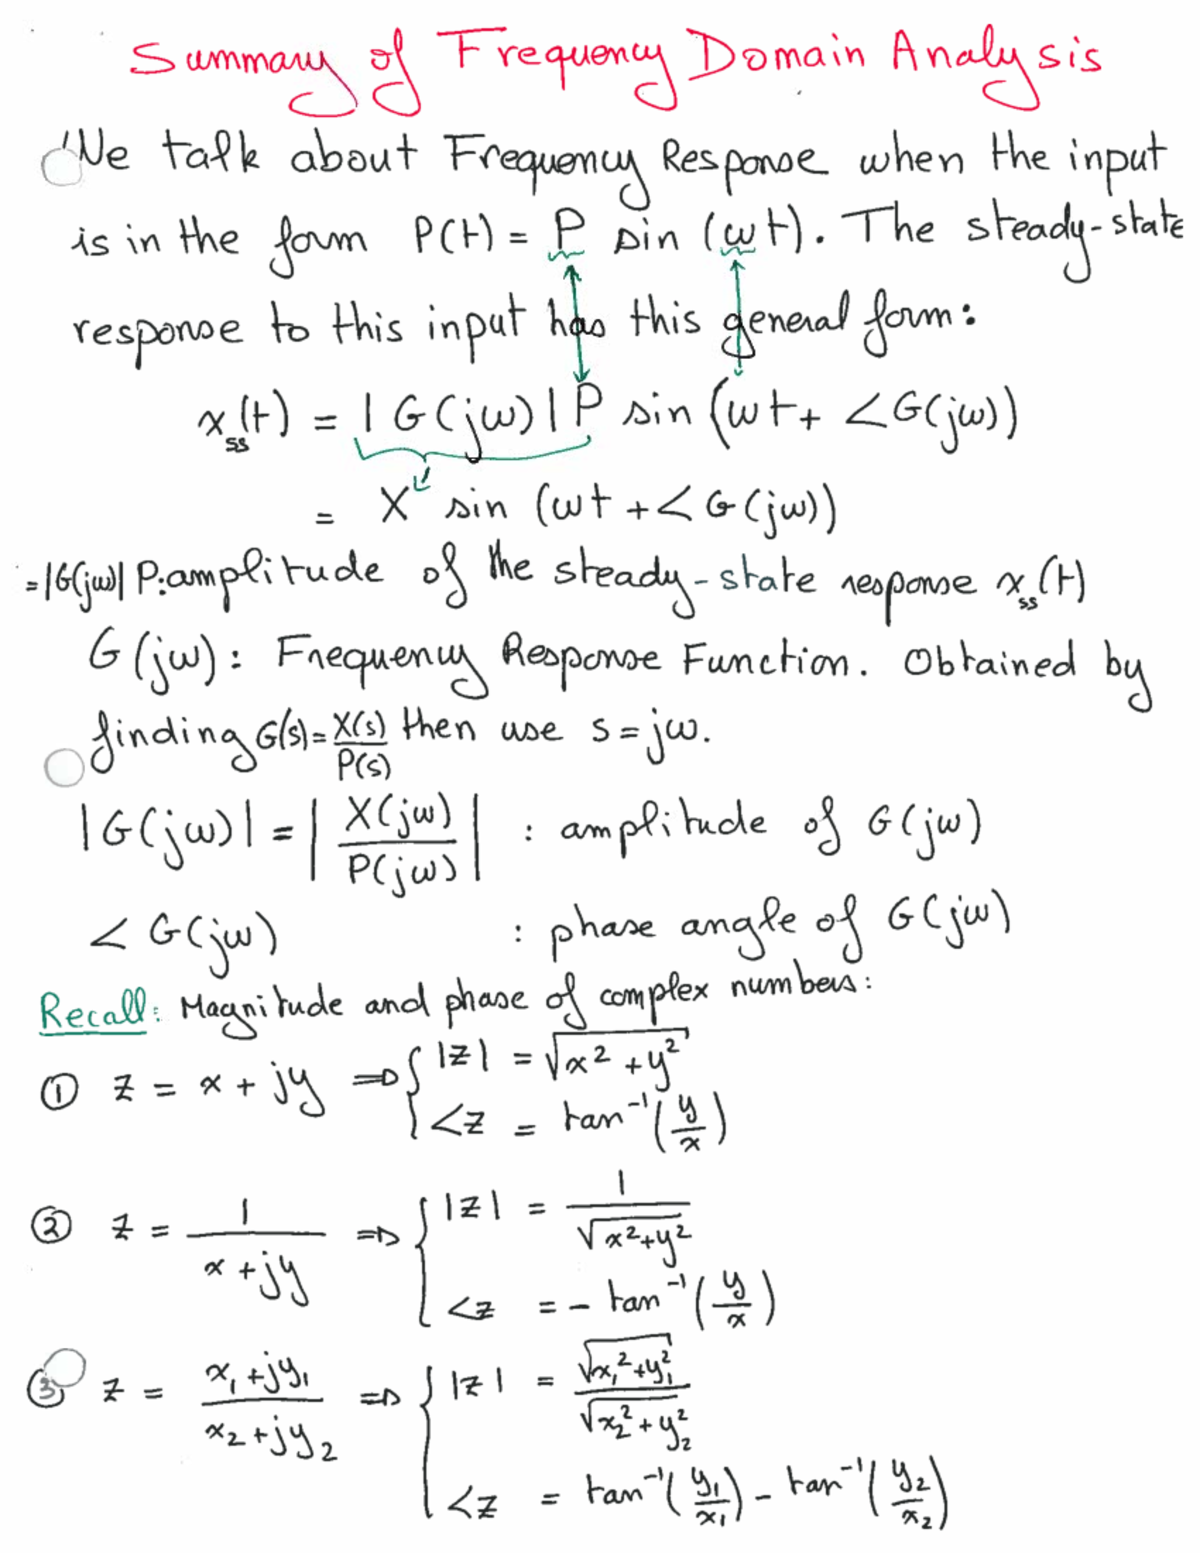 Summary of Frequency Domain Analysis
We talk about Frequency Response when the input
is in the form P(t) = P sin (ωt). The steady-state
response to this input has this general form:
x_ss(t) = |G(jω)|P sin (ωt + ∠G(jω))
= X sin (ωt + ∠G(jω))
=|G(jω)| P: amplitude of the steady-state response x_ss(t)
G(jω): Frequency Response Function. Obtained by
finding G(s) = X(s)/P(s) then use s = jω.
|G(jω)| = |X(jω)/P(jω)| : amplitude of G(jω)
∠G(jω) : phase angle of G(jω)
Recall: Magnitude and phase of complex numbers:
① z = x + jy ⇒ { |z| = √(x² + y²)
∠z = tan⁻¹(y/x)
② z = 1/(x + jy) ⇒ { |z| = 1/√(x²+y²)
∠z = - tan⁻¹(y/x)
③ z = (x₁+jy₁)/(x₂+jy₂) ⇒ { |z| = √(x₁²+y₁²)/√(x₂²+y₂²)
∠z = tan⁻¹(y₁/x₁) - tan⁻¹(y₂/x₂)